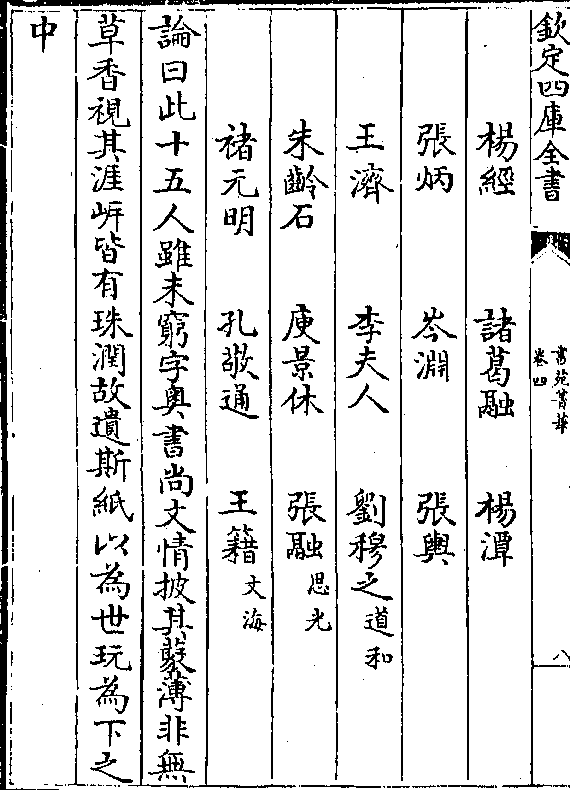 欽定四庫全書
書苑菁華
卷四
八
楊經 諸葛融 楊潭
張炳 岑淵 張輿
王濟 李夫人 劉穆之道和
朱齡石 庾景休 張融思光
褚元明 孔敬通 王籍文海
論曰此十五人雖未窮字奥書尚文情披其藂薄非無
草香視其涯岸皆有珠潤故遺斯紙以為世玩為下之
中